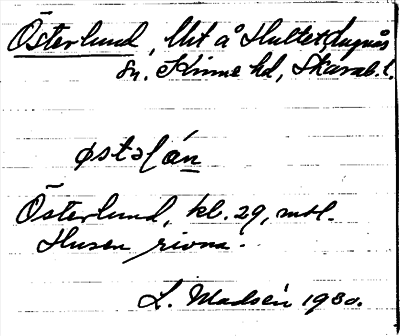 Österlund, lht å Hultet, Lugnås
sn, Kinne hd, Skarab. l.
østəl án
Österlund, kl. 29, mtl.
Husen rivna.
L. Madsén 1930.